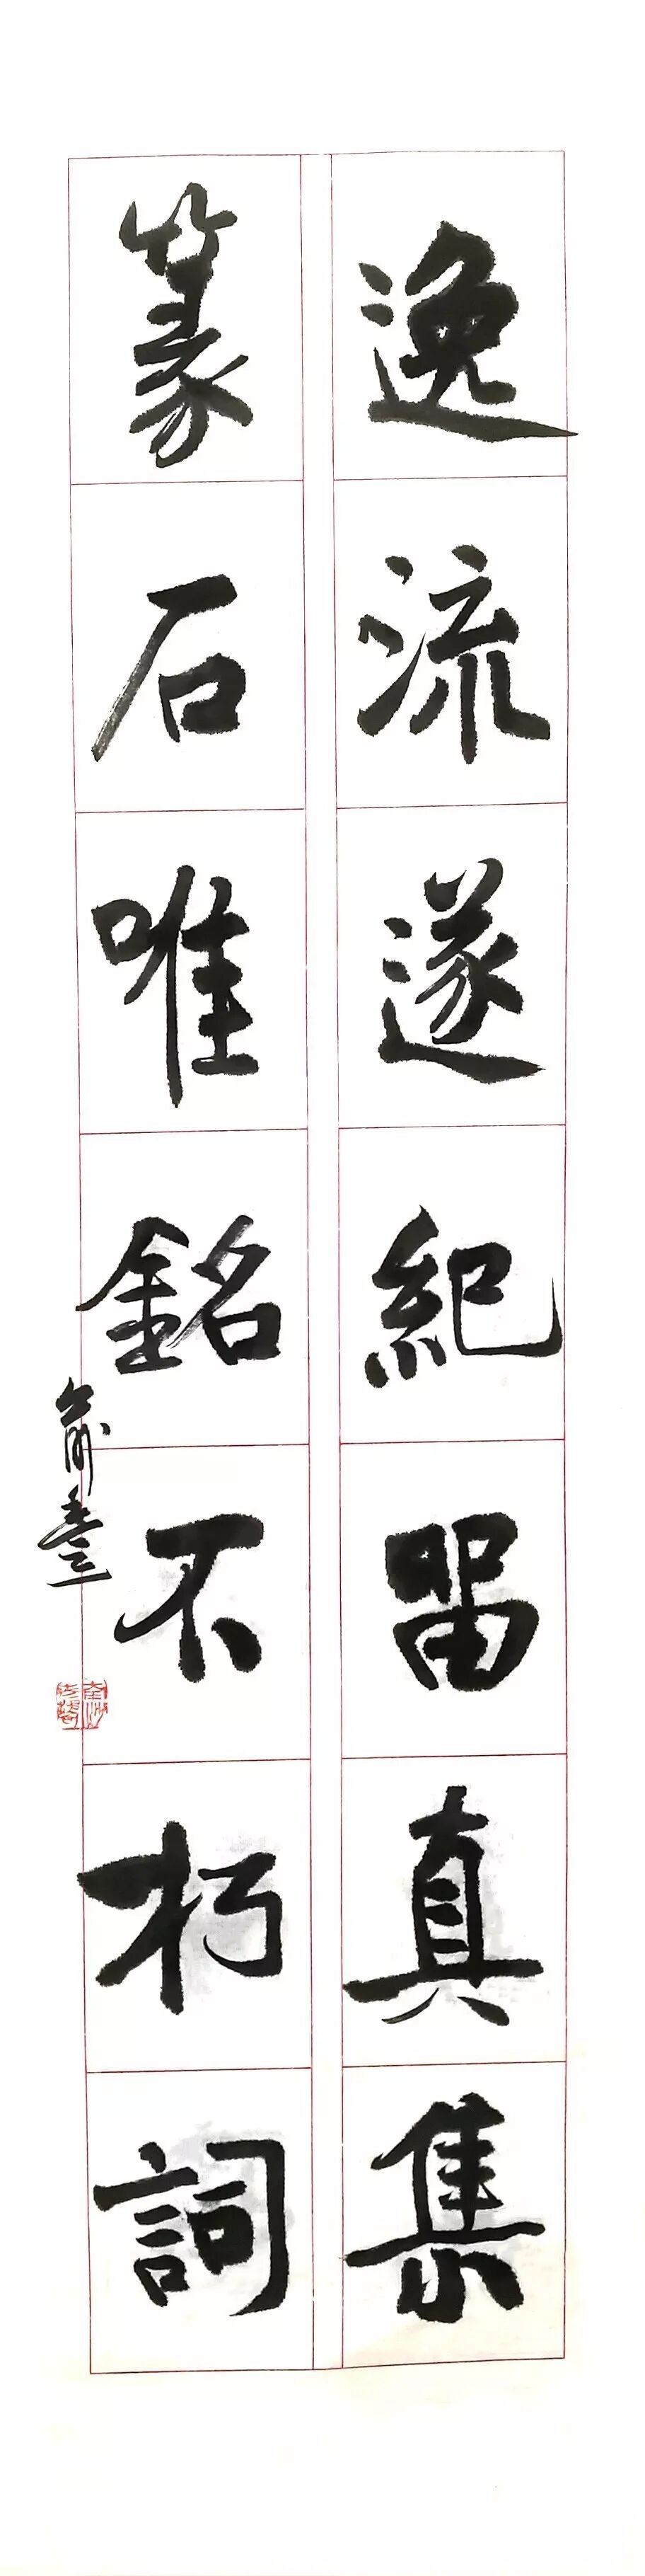 逸流遂紀留真集
篆石唯銘不朽詞